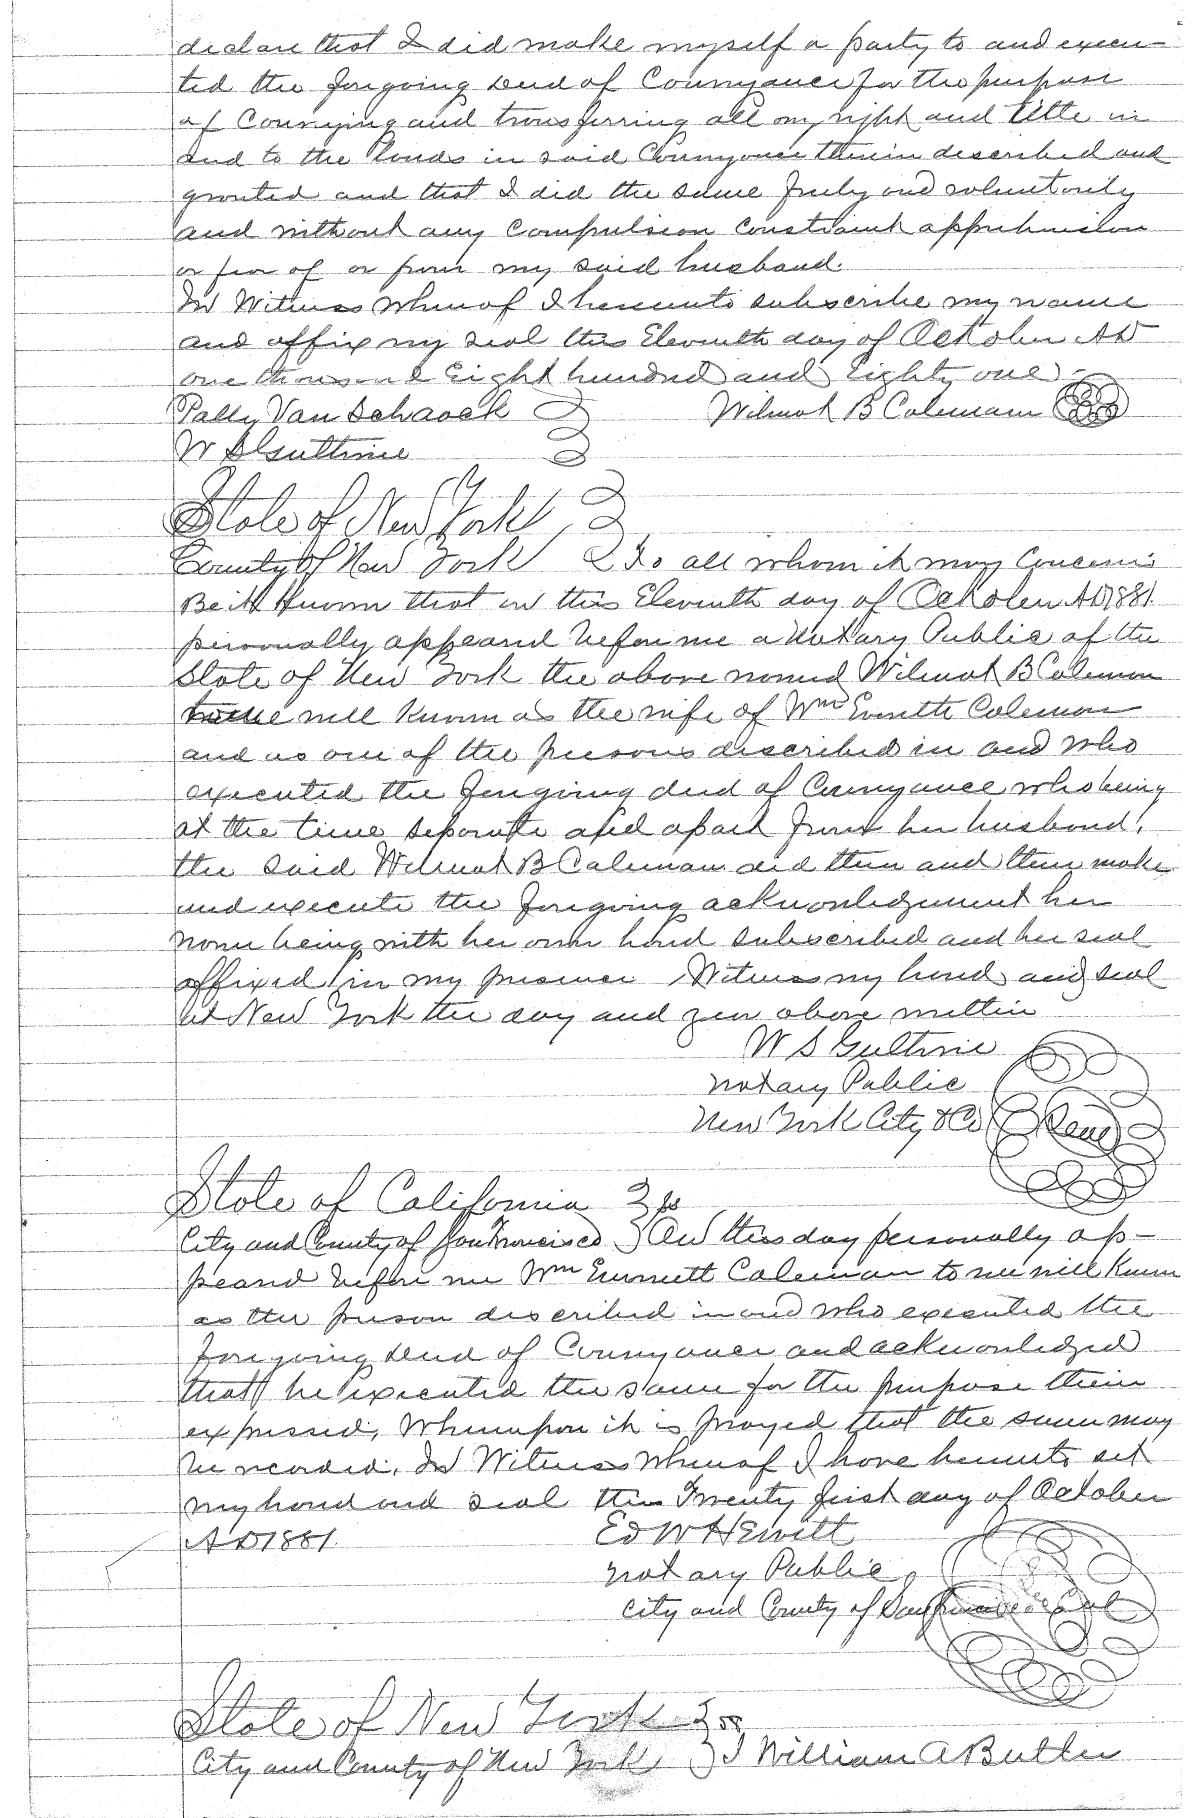 declare that I did make myself a party to and execu-
ted the foregoing deed of Conveyance for the purpose
of Conveying and transferring all my right and title in
and to the lands in said Conveyance therein described and
granted and that I did the same freely and voluntarily
and without any Compulsion Constraint apprehension
or fear of or from my said husband.
In Witness Whereof I hereunto subscribe my name
and affix my seal this Eleventh day of October AD
one thousand Eight hundred and Eighty one
Pally Van Schaack
Wilmot B Coleman
W S Guthrie
State of New York
County of New York To all whom it may Concern
Be it Known that on this Eleventh day of October AD1881.
personally appeared before me a Notary Public of the
State of New York the above named Wilmot B Coleman
to me well Known as the wife of Wm Emmette Coleman
and as one of the persons described in and who
executed the foregoing deed of Conveyance who being
at the time separate and apart from her husband,
the said Wilmot B Coleman did then and there make
and execute the foregoing acknowledgement her
name being with her own hand subscribed and her seal
affixed in my presence Witness my hand and seal
at New York the day and year above written
W S Guthrie
Notary Public
New York City & Co Seal
State of California ss
City and County of San Francisco On this day personally ap-
peared before me Wm Emmett Coleman to me well Known
as the person described in and who executed the
foregoing deed of Conveyance and acknowledged
that he executed the same for the purpose therein
expressed, Whereupon it is prayed that the same may
be recorded. In Witness Whereof I have hereunto set
my hand and seal this Twenty first day of October
AD1881.
Ed W Hewitt
Notary Public
City and County of San Francisco Cal
State of New York ss
City and County of New York I William A Butler